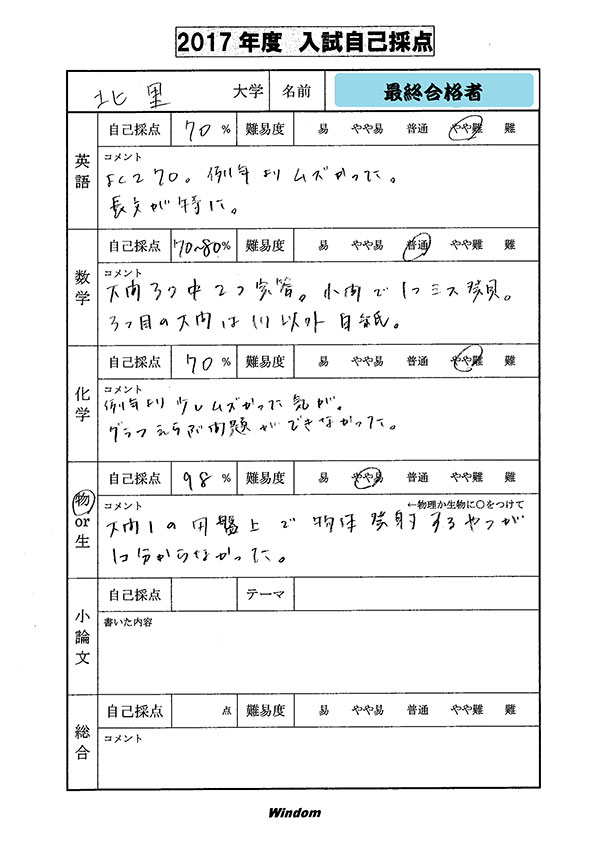 2017年度 入試自己採点
北里 大学 名前 最終合格者
英語 自己採点 70 % 難易度 易 やや易 普通 やや難 難
コメント
よくて70。例年よりムズかった。
長文が特に。
数学 自己採点 70~80% 難易度 易 やや易 普通 やや難 難
コメント
大問3つ中2つ完答。小問で1つミス
3つ目の大問は(1)以外白紙。
化学 自己採点 70 % 難易度 易 やや易 普通 やや難 難
コメント
例年より少しムズかった気が。
グラフえらぶ問題ができなかった。
物or生 自己採点 98 % 難易度 易 やや易 普通 やや難 難
コメント ←物理か生物に〇をつけて
大問1の円盤上で物体発射するやつが
分からなかった。
小論文 自己採点 テーマ
書いた内容
総合 自己採点 点 難易度 易 やや易 普通 やや難 難
コメント
Windom